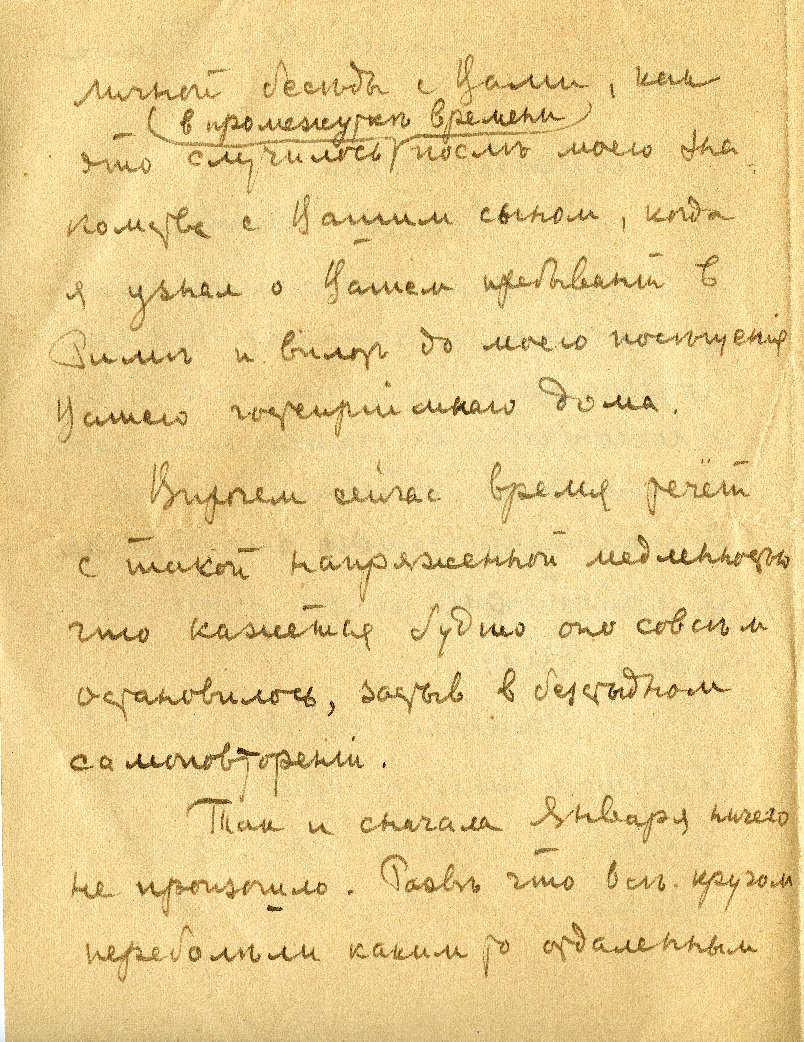 личной бесѣды с Вами, как
в промежуткѣ времени
это случилось послѣ моего зна
комства с Вашим сыном, когда
я узнал о Вашем пребываніи в
Римѣ и вплоть до моего посѣщенія
Вашего гостепріимнаго дома.
Впрочем сейчас время течёт
с такой напряженной медленностью
что кажется будто оно совсѣм
остановилось, застыв в безстыдном
самоповтореніи.
Так и сначала Января ничего
не произошло. Развѣ что всѣ кругом
переболѣли каким то отдаленным